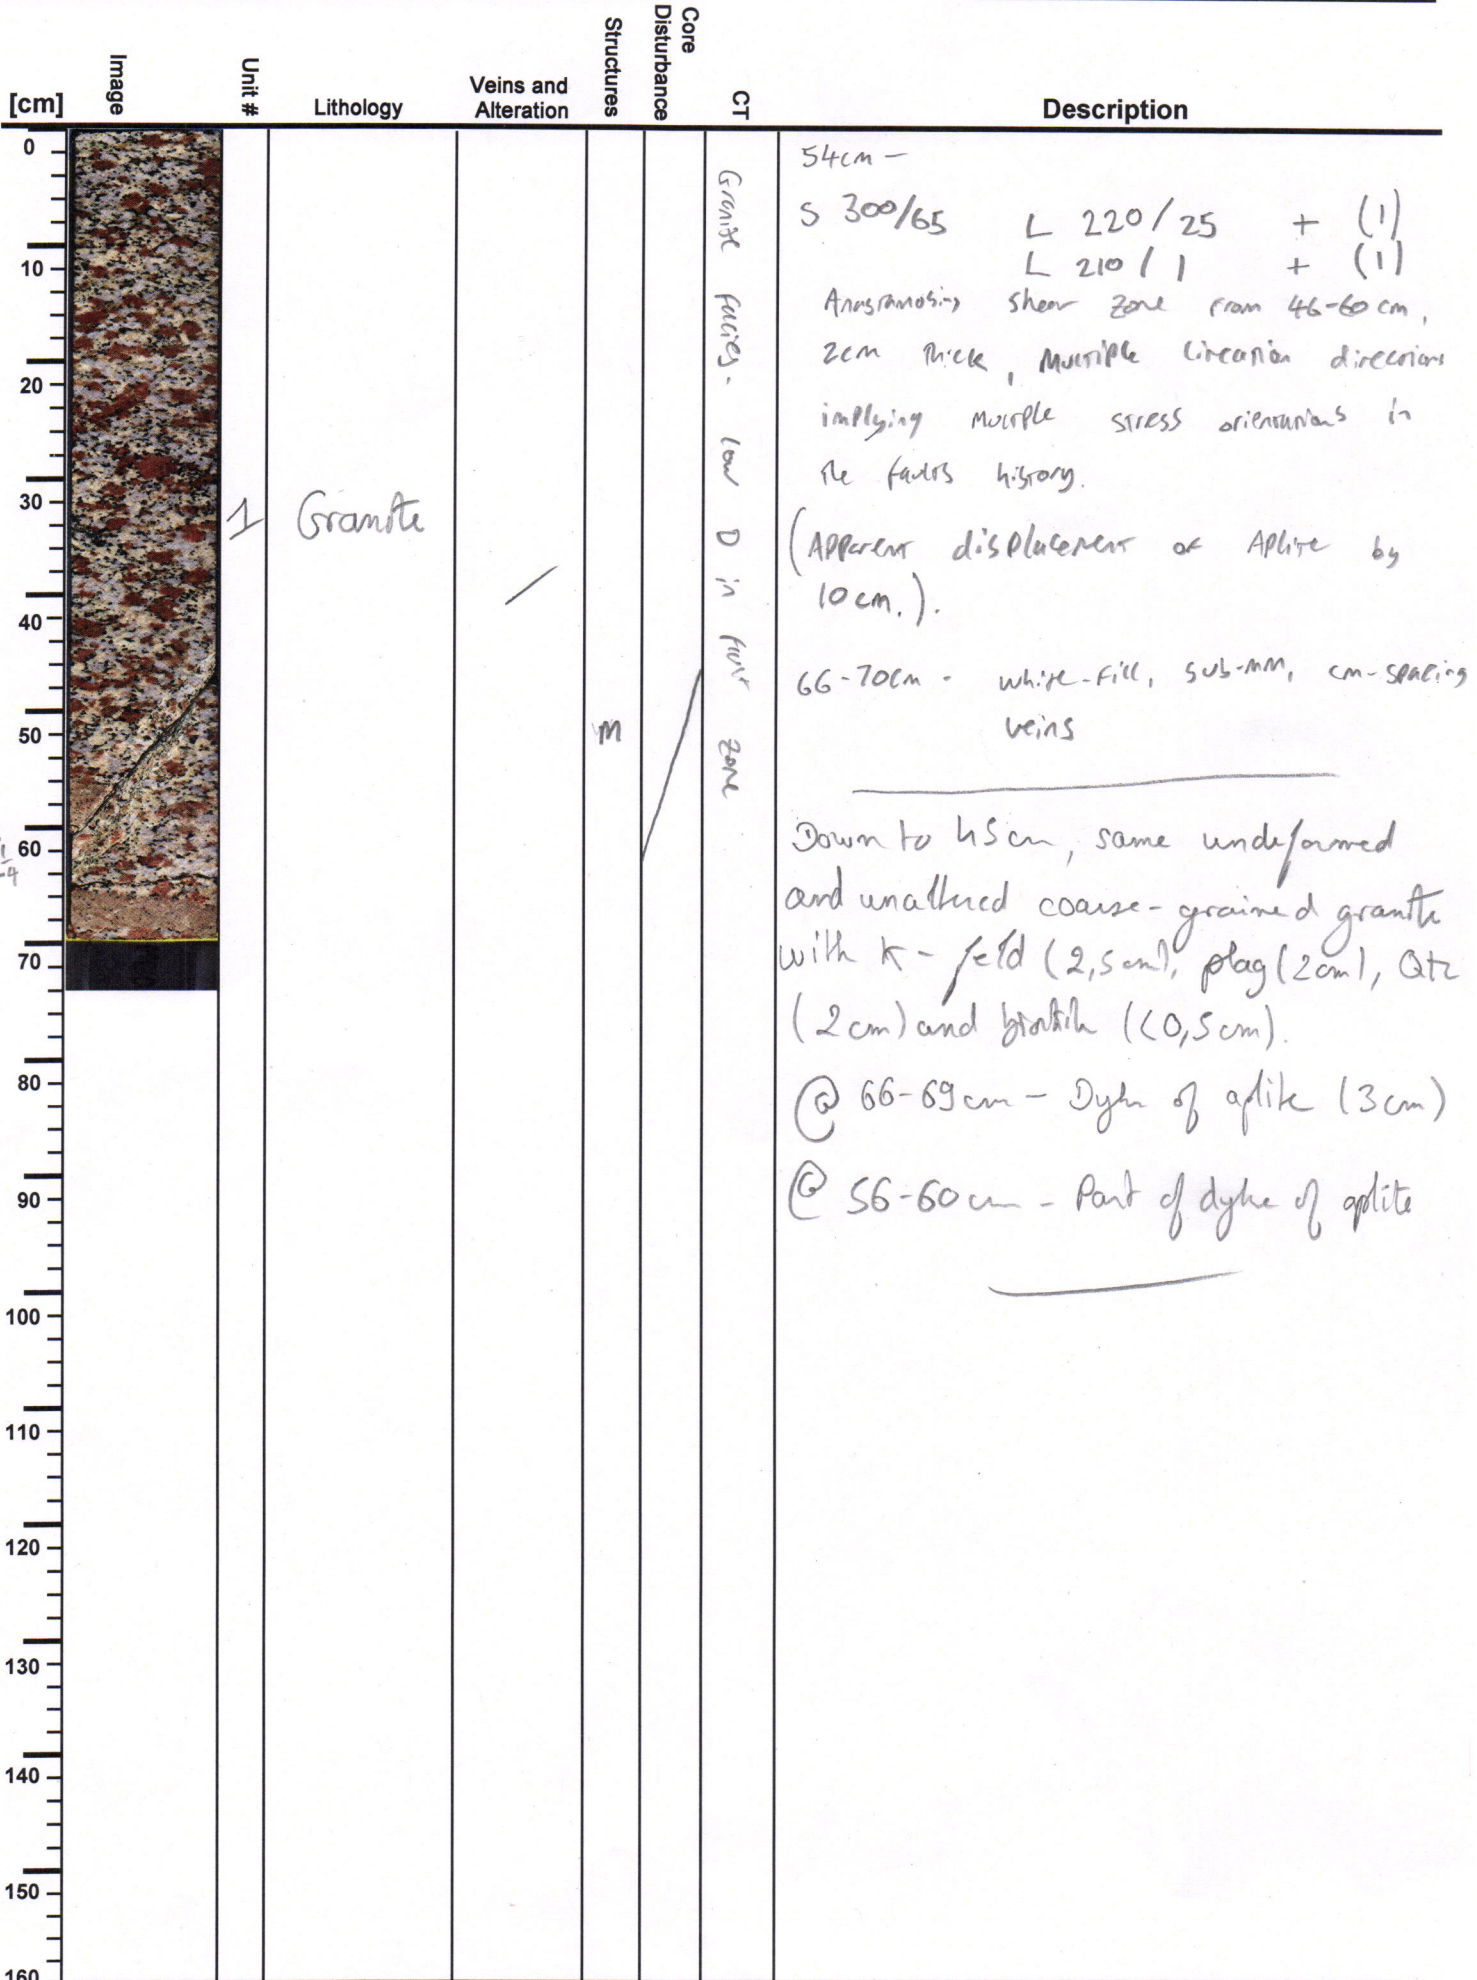 [cm]
Image
Unit #
Lithology
Veins and
Alteration
Structures
Core
Disturbance
CT
Description
0
10
20
30
40
50
60
70
80
90
100
110
120
130
140
150
160
1
Granite
M
Granite facies. low D in fault zone
54cm -
S 300/65 L 220/25 + (1)
L 210/1 + (1)
Anastamosing shear zone from 46-60cm,
2cm thick, Multiple lineation directions
implying multiple stress orientations in
the faults history.
(Apparent displacement of Aplite by
10cm.).
66-70cm - white-fill, sub-mm, cm-spacing
veins
Down to 45cm, same undeformed
and unaltered coarse-grained granite
with K-feld (2,5cm), plag (2cm), Qtz
(2cm) and biotite (<0,5cm).
@ 66-69cm - Dyke of aplite (3cm)
@ 56-60cm - Part of dyke of aplite